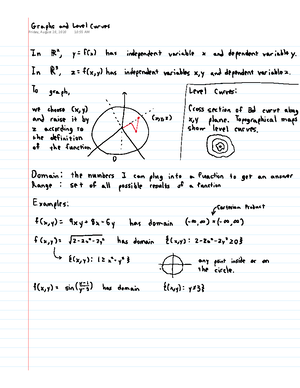 Graphs and Level Curves
Friday, August 24, 2018 10:00 AM
In ℝ², y = f(x) has independent variable x and dependent variable y.
In ℝ³, z = f(x,y) has independent variables x,y and dependent variable z.
To graph,
we choose (x,y)
and raise it by
z according to
the definition
of the function
(x,y,z)
D
Level Curves:
Cross section of 3D curve along
x,y plane. Topographical maps
show level curves.
Domain: the numbers I can plug into a function to get an answer
Range: set of all possible results of a function
Examples:
Cartesian Product
f(x,y) = 9xy + 8x - 6y has domain (-∞,∞) × (-∞,∞)
f(x,y) = √2-2x²-2y² has domain {(x,y): 2-2x²-2y² ≥ 0}
↳ {(x,y): 1 ≥ x²-y²}
any point inside or on
the circle.
f(x,y) = sin( ) has domain {(x,y): y≠3}